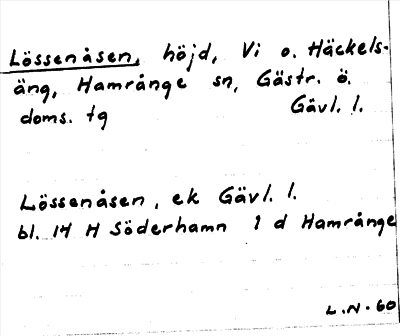 Lössenåsen, höjd, Vi o. Häckels-
äng, Hamrånge sn, Gästr. ö.
doms. tg Gävl. l.
Lössenåsen, ek Gävl. l.
bl. 14 H Söderhamn 1 d Hamrånge
L.N. 60